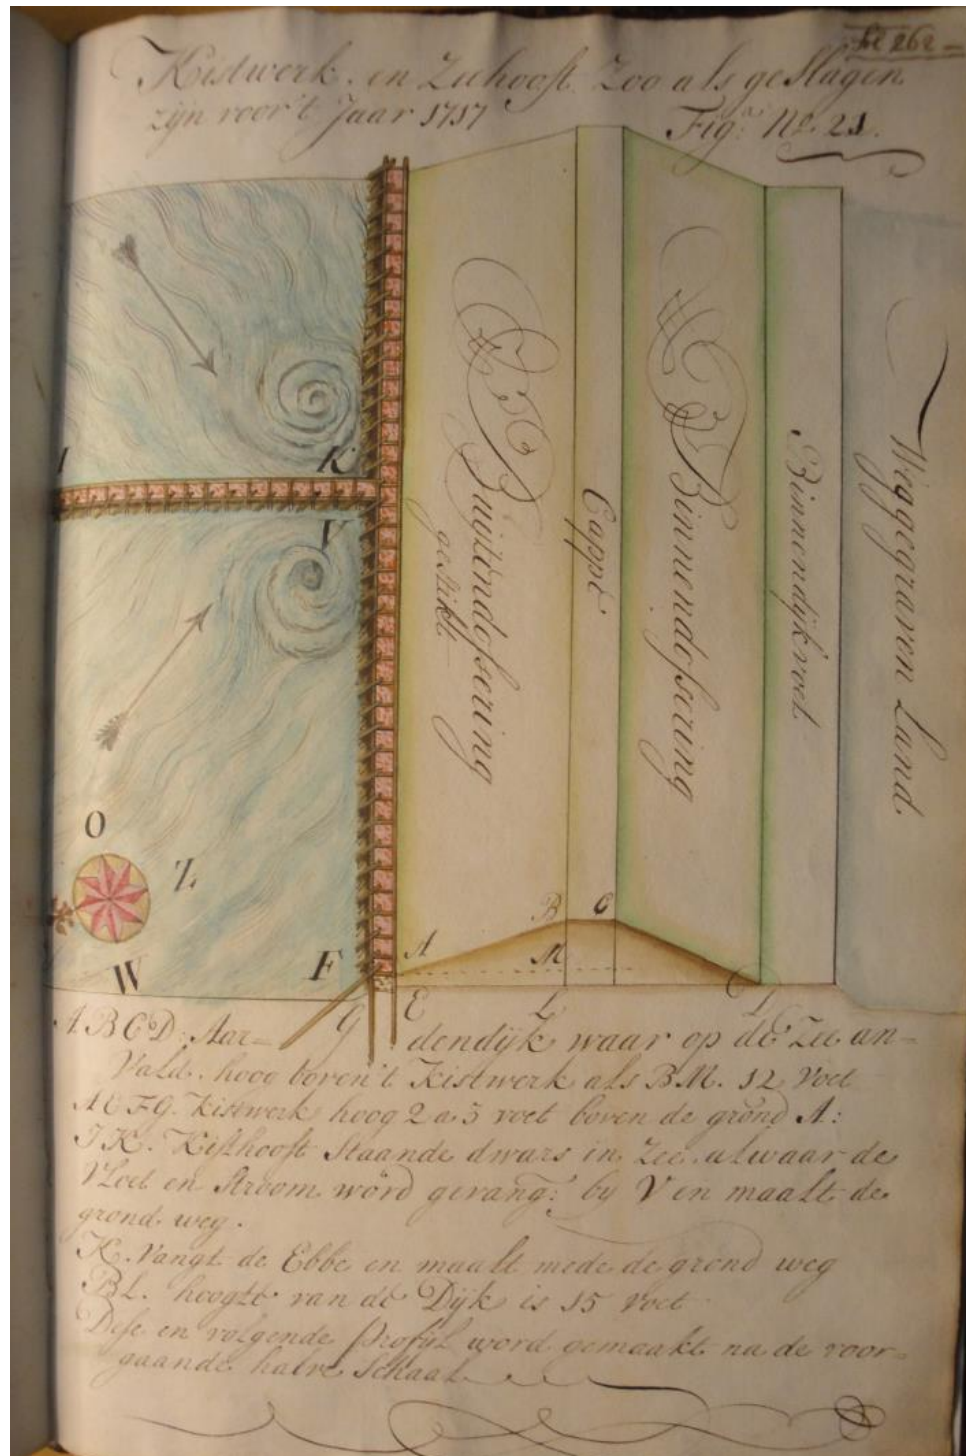 fol 262
Kistwerk. en Zeehooft Zoo als geslagen
zijn voor't Jaar 1717
Fig:a No. 21.
Buijtendosering
gestikt
Cappe
Binnendosering
Binnendijkvoet
Weggegraven Land
I
K
V
O
Z
W
F
A
B
C
M
E
L
D
G
A B C D: Aar= dendijk waar op de Zee an=
Vald. hoog boven't Kistwerk als BM. 12 Voet
A E F G. Kistwerk hoog 2 a 3 voet boven de grond A:
I K. Kisthooft Staande dwars in Zee. alwaar de
Vloet en Stroom word gevang: by V en maalt de
grond weg.
K. Vangt de Ebbe en maalt mede de grond weg
BL. hoogte van de Dijk is 15 voet
Dese en volgende profyl word gemaakt na de voor=
gaande halve Schaal